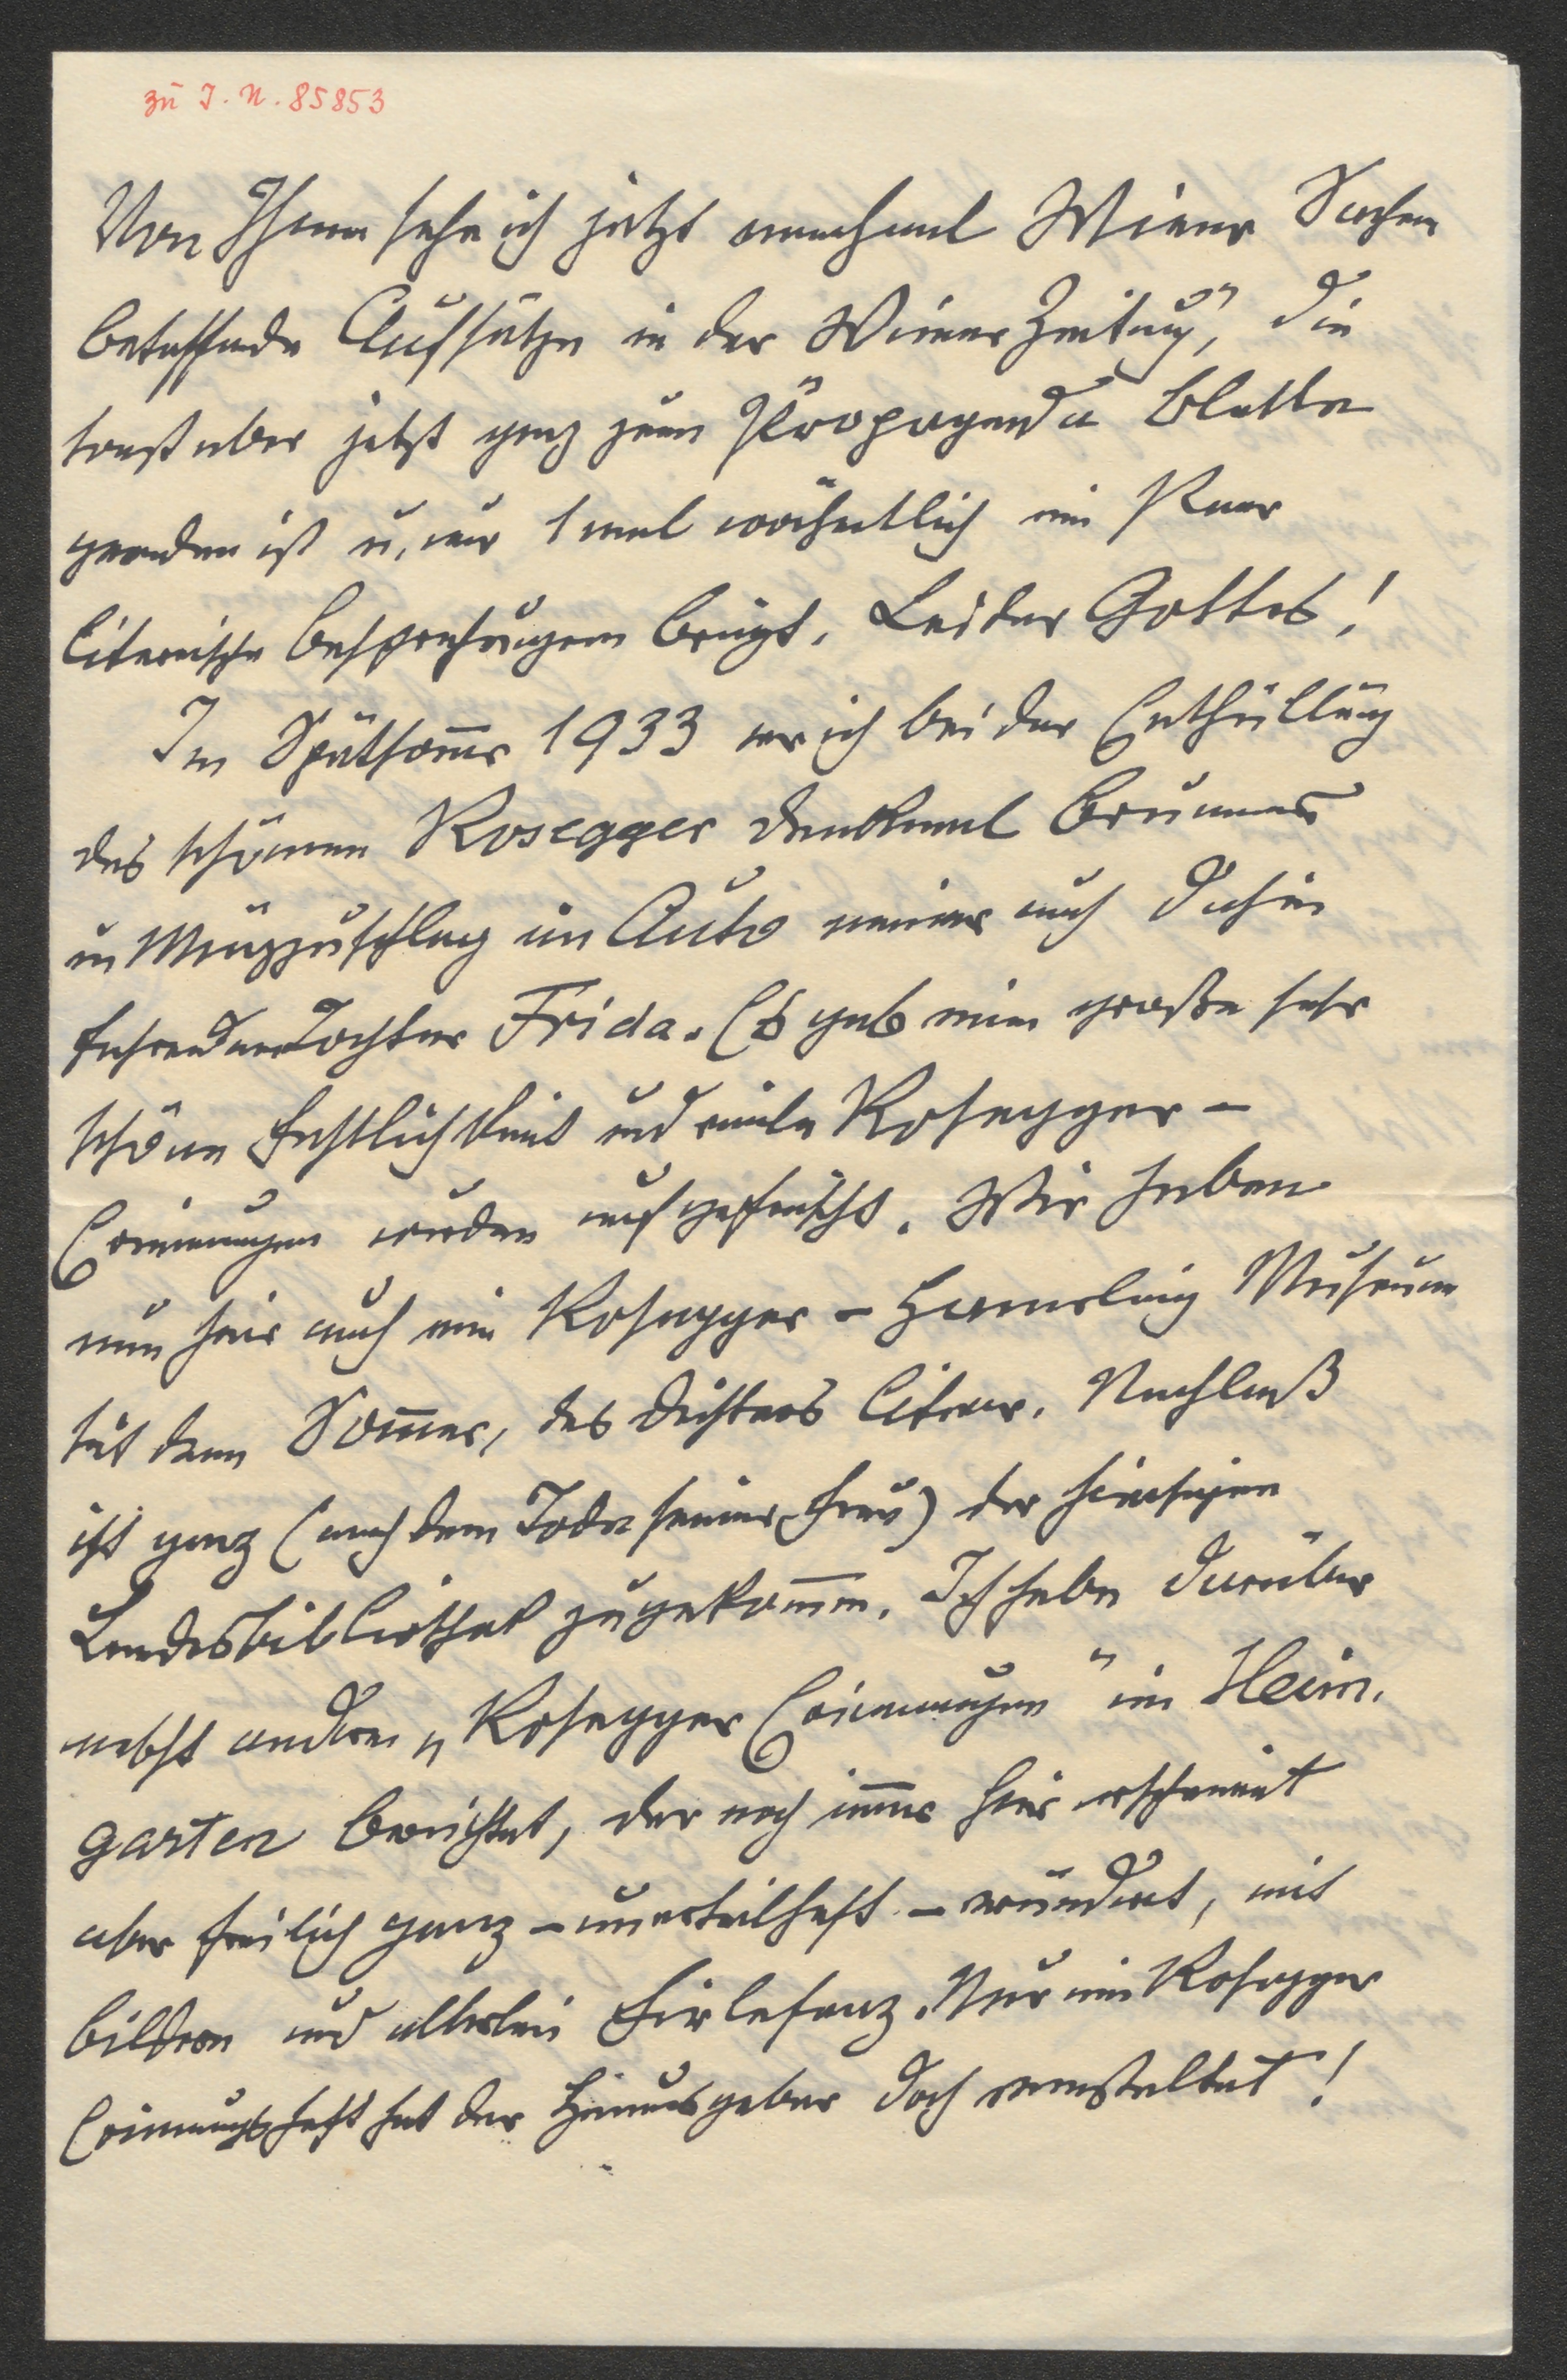 zu I. N. 85853
Von Ihnen sehe ich jetzt manchmal Wiener Sachen
betreffende Aufsätze in der Wiener Zeitung", die
sonst aber jetzt ganz zum Propaganda Blatte
geworden ist u. nur 1 mal wöchentlich ein Paar
literarische Besprechungen bringt. Leider Gottes!
Im Spätsom̅er 1933 war ich bei der Enthüllung
des schönen Rosegger Denkmal Brunnens
in Mürzzuschlag im Auto meiner auch dahin
fahrenden Tochter Frida. Es gab eine große sehr
schöne Festlichkeit und viele Rosegger-
Erinnerungen wurden aufgefrischt. Wir haben
nun hier auch ein Rosegger - Hamerling Museum
seit dem Som̅er, des Dichters literar. Nachlaß
ist ganz (nach dem Tode seiner Frau) der hiesigen
Landesbibliothek zugekom̅en. Ich habe darüber
nebst andern „Rosegger Erinnerungen" im Heim.
garten berichtet, der noch im̅er hier erscheint
aber freilich ganz - unvorteilhaft - verändert, mit
Bildern und allerlei Firlefanz. Nur ein Rosegger
Erinnerungsheft hat der Herausgeber doch veranstaltet!